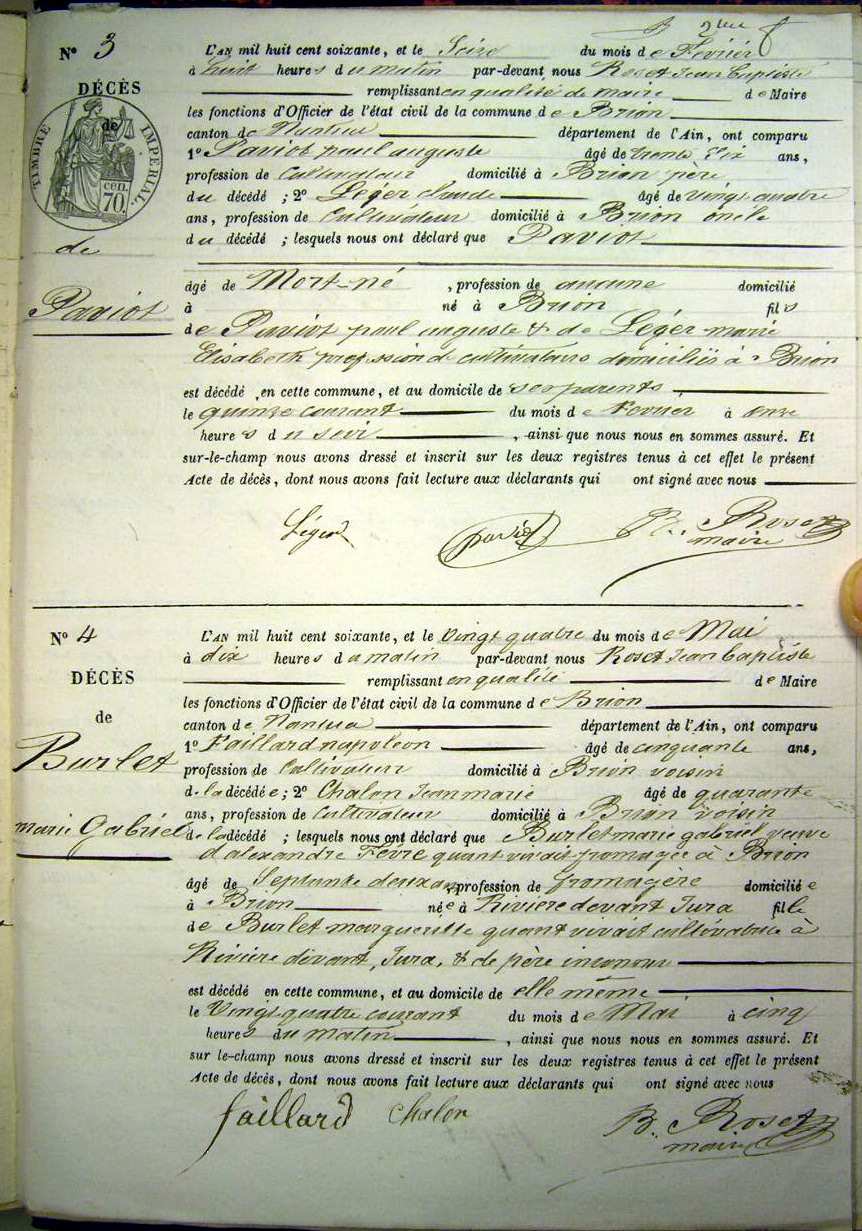 N° 3
L'AN mil huit cent soixante, et le Seize du mois de Février
à huit heures du matin par-devant nous Roset Jean baptiste
remplissant en qualité de maire de Maire
DÉCÈS
les fonctions d'Officier de l'état civil de la commune de Brion
de
canton de Nantua département de l'Ain, ont comparu
TIMBRE IMPÉRIAL.
cen. 70.
1° Paviot paul auguste âgé de trente six ans,
profession de Cultivateur domicilié à Brion père
du décédé ; 2° Léger claude âgé de vingt quatre
ans, profession de Cultivateur domicilié à Brion oncle
du décédé ; lesquels nous ont déclaré que Paviot
de
Paviot
âgé de Mort-né , profession de aucune domicilié
à né à Brion fils
de Paviot paul auguste & de Léger marie
Elisabeth profession de cultivateurs domiciliés à Brion
est décédé en cette commune, et au domicile de ses parents
le quinze courant du mois de Fevrier à onze
heures du soir , ainsi que nous nous en sommes assuré. Et
sur-le-champ nous avons dressé et inscrit sur les deux registres tenus à cet effet le présent
Acte de décès, dont nous avons fait lecture aux déclarants qui ont signé avec nous
Léger paviot Roset
maire
N° 4
L'AN mil huit cent soixante, et le vingt quatre du mois de Mai
à dix heures du matin par-devant nous Roset Jean baptiste
remplissant en qualité de Maire
DÉCÈS
les fonctions d'Officier de l'état civil de la commune de Brion
de
canton de Nantua département de l'Ain, ont comparu
1° Faillard napoleon âgé de cinquante ans,
Burlet
profession de Cultivateur domicilié à Brion voisin
de la décédée; 2° Chalon Jean marie âgé de quarante
ans, profession de Cultivateur domicilié à Brion voisin
marie Gabriel
de la décédé ; lesquels nous ont déclaré que Burlet marie gabriel veuve
d'alexandre Févre quant vivait fromager à Brion
âgé de Septante deux ans, profession de fromagère domiciliée
à Brion née à Riviere devant Jura fille
de Burlet marguerite quant vivait cultivatrice à
Riviere devant, Jura, & de père inconnu
est décédé en cette commune, et au domicile de elle même
le Vingt quatre courant du mois de Mai à cinq
heures du matin , ainsi que nous nous en sommes assuré. Et
sur le-champ nous avons dressé et inscrit sur les deux registres tenus à cet effet le présent
Acte de décès, dont nous avons fait lecture aux déclarants qui ont signé avec nous
faillard Chalon B. Roset
maire